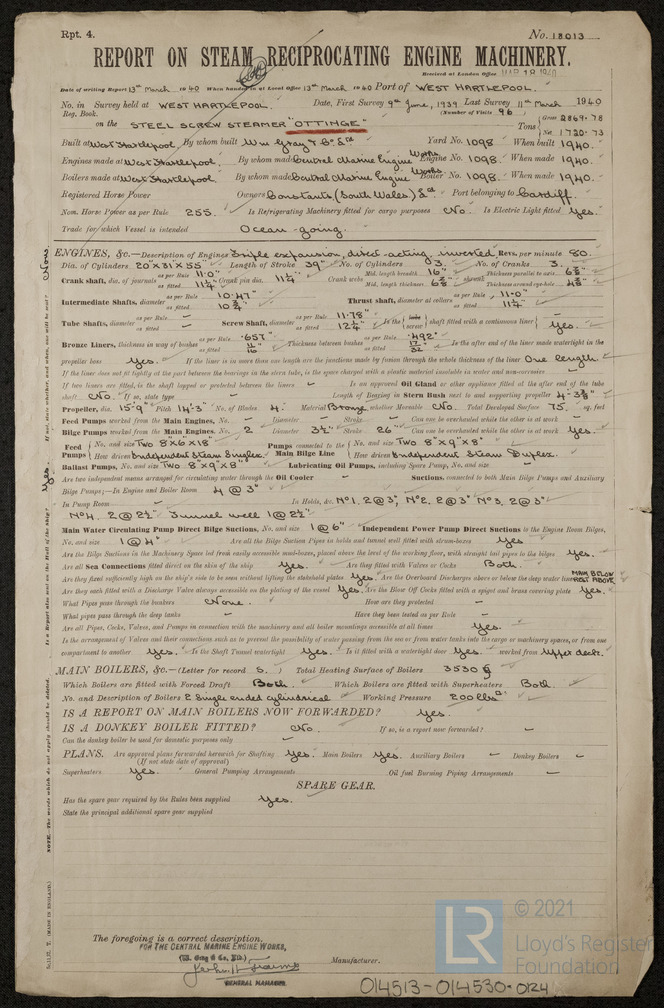 Rpt. 4. No. 18013
REPORT ON STEAM RECIPROCATING ENGINE MACHINERY.
Received at London Office MAR 18 1940
Date of writing Report 13th March 1940 When handed in at Local Office 13th March 1940 Port of WEST HARTLEPOOL.
No. in Survey held at WEST HARTLEPOOL. Date, First Survey 9th June, 1939 Last Survey 11th March 1940
Reg. Book. (Number of Visits 96)
on the STEEL SCREW STEAMER "OTTINGE" Tons Gross 2869.78 Net 1720.73
Built at West Hartlepool. By whom built Wm Gray & Co. Ltd Yard No. 1098 When built 1940.
Engines made at West Hartlepool. By whom made Central Marine Engine Works. Engine No. 1098. When made 1940.
Boilers made at West Hartlepool. By whom made Central Marine Engine Works. Boiler No. 1098. When made 1940.
Registered Horse Power Owners Constants (South Wales) Ld Port belonging to Cardiff.
Nom. Horse Power as per Rule 255. Is Refrigerating Machinery fitted for cargo purposes No. Is Electric Light fitted Yes.
Trade for which Vessel is intended Ocean-going.
ENGINES, &c.—Description of Engines Triple expansion, direct-acting, inverted. Revs. per minute 80.
Dia. of Cylinders 20"x31"x55" Length of Stroke 39" No. of Cylinders 3. No. of Cranks 3.
Crank shaft, dia. of journals as per Rule 11.0" as fitted 11 1/4" Crank pin dia. 11 1/4" Crank webs Mid. length breadth 16" Mid. length thickness 6 7/8" shrunk Thickness parallel to axis 6 7/8" Thickness around eye-hole 4 7/8"
Intermediate Shafts, diameter as per Rule 10.47" as fitted 10 3/4" Thrust shaft, diameter at collars as per Rule 11.0" as fitted 11 1/4"
Tube Shafts, diameter as per Rule — as fitted — Screw Shaft, diameter as per Rule 11.78" as fitted 12 1/4" Is the tube screw shaft fitted with a continuous liner Yes.
Bronze Liners, thickness in way of bushes as per Rule .657" as fitted 11/16" Thickness between bushes as per Rule .492" as fitted 17/32" Is the after end of the liner made watertight in the
propeller boss Yes. If the liner is in more than one length are the junctions made by fusion through the whole thickness of the liner One length.
If the liner does not fit tightly at the part between the bearings in the stern tube, is the space charged with a plastic material insoluble in water and non-corrosive —
If two liners are fitted, is the shaft lapped or protected between the liners — Is an approved Oil Gland or other appliance fitted at the after end of the tube
shaft No. If so, state type — Length of Bearing in Stern Bush next to and supporting propeller 4'-3 3/8"
Propeller, dia. 15'-9" Pitch 14'-3" No. of Blades 4. Material Bronze whether Moveable No. Total Developed Surface 75. sq. feet
Feed Pumps worked from the Main Engines, No. — Diameter — Stroke — Can one be overhauled while the other is at work —
Bilge Pumps worked from the Main Engines, No. 2 Diameter 3 1/2" Stroke 26" Can one be overhauled while the other is at work Yes.
Feed Pumps No. and size Two 8"x6"x18" Pumps connected to the Main Bilge Line No. and size Two 8"x9"x8"
How driven Independent Steam Simplex. How driven Independent Steam Duplex.
Ballast Pumps, No. and size Two 8"x9"x8" Lubricating Oil Pumps, including Spare Pump, No. and size —
Are two independent means arranged for circulating water through the Oil Cooler — Suctions, connected to both Main Bilge Pumps and Auxiliary
Bilge Pumps;—In Engine and Boiler Room 4 @ 3"
In Pump Room — In Holds, &c. No1, 2@3", No2, 2@3" No3, 2@3"
No4. 2@2 1/2" Tunnel well 1@2 1/2"
Main Water Circulating Pump Direct Bilge Suctions, No. and size 1@6" Independent Power Pump Direct Suctions to the Engine Room Bilges,
No. and size 1@4" Are all the Bilge Suction Pipes in holds and tunnel well fitted with strum-boxes Yes
Are the Bilge Suctions in the Machinery Space led from easily accessible mud-boxes, placed above the level of the working floor, with straight tail pipes to the bilges Yes.
Are all Sea Connections fitted direct on the skin of the ship Yes. Are they fitted with Valves or Cocks Both.
Are they fixed sufficiently high on the ship's side to be seen without lifting the stokehold plates Yes. Are the Overboard Discharges above or below the deep water line MAIN BELOW REST ABOVE
Are they each fitted with a Discharge Valve always accessible on the plating of the vessel Yes. Are the Blow Off Cocks fitted with a spigot and brass covering plate Yes.
What Pipes pass through the bunkers None. How are they protected —
What pipes pass through the deep tanks — Have they been tested as per Rule —
Are all Pipes, Cocks, Valves, and Pumps in connection with the machinery and all boiler mountings accessible at all times Yes.
Is the arrangement of Valves and their connections such as to prevent the possibility of water passing from the sea or from water tanks into the cargo or machinery spaces, or from one
compartment to another Yes. Is the Shaft Tunnel watertight Yes. Is it fitted with a watertight door Yes. worked from Upper deck.
MAIN BOILERS, &c.—(Letter for record S.) Total Heating Surface of Boilers 3530
Which Boilers are fitted with Forced Draft Both. Which Boilers are fitted with Superheaters Both.
No. and Description of Boilers 2 Single ended cylindrical Working Pressure 200 lbs
IS A REPORT ON MAIN BOILERS NOW FORWARDED? Yes.
IS A DONKEY BOILER FITTED? No. If so, is a report now forwarded? —
Can the donkey boiler be used for domestic purposes only —
PLANS. Are approved plans forwarded herewith for Shafting Yes. Main Boilers Yes. Auxiliary Boilers — Donkey Boilers —
(If not state date of approval)
Superheaters Yes. General Pumping Arrangements Oil fuel Burning Piping Arrangements —
SPARE GEAR.
Has the spare gear required by the Rules been supplied Yes.
State the principal additional spare gear supplied
The foregoing is a correct description,
FOR THE CENTRAL MARINE ENGINE WORKS,
(Wm. Gray & Co. Ltd.)
Manufacturer.
GENERAL MANAGER.
014513-014530-0124
NOTE.—The words which do not apply should be deleted.
Is a Report also sent on the Hull of the ship? Yes.
If not, state whether, and when, one will be sent? None.
(MADE IN ENGLAND.)
LR
© 2021
Lloyd's Register
Foundation